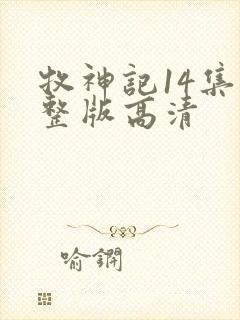 牧神記14集
整版高清
喻鐗